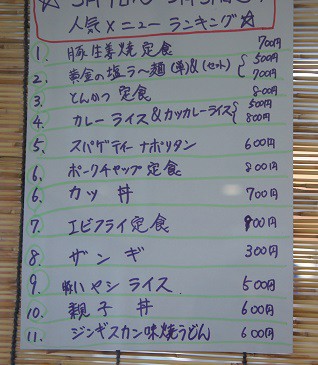 人気メニューランキング☆
1. 豚生姜焼定食 700円
2. 黄金の塩ラ〜麺(単)&(セット) { 500円 700円
3. とんかつ定食 800円
4. カレーライス&カツカレーライス { 500円 800円
5. スパゲティーナポリタン 600円
6. ポークチャップ定食 800円
6. カツ丼 700円
7. エビフライ定食 900円
8. ザンギ 300円
9. ハヤシライス 500円
10. 親子丼 600円
11. ジンギスカン味焼うどん 600円